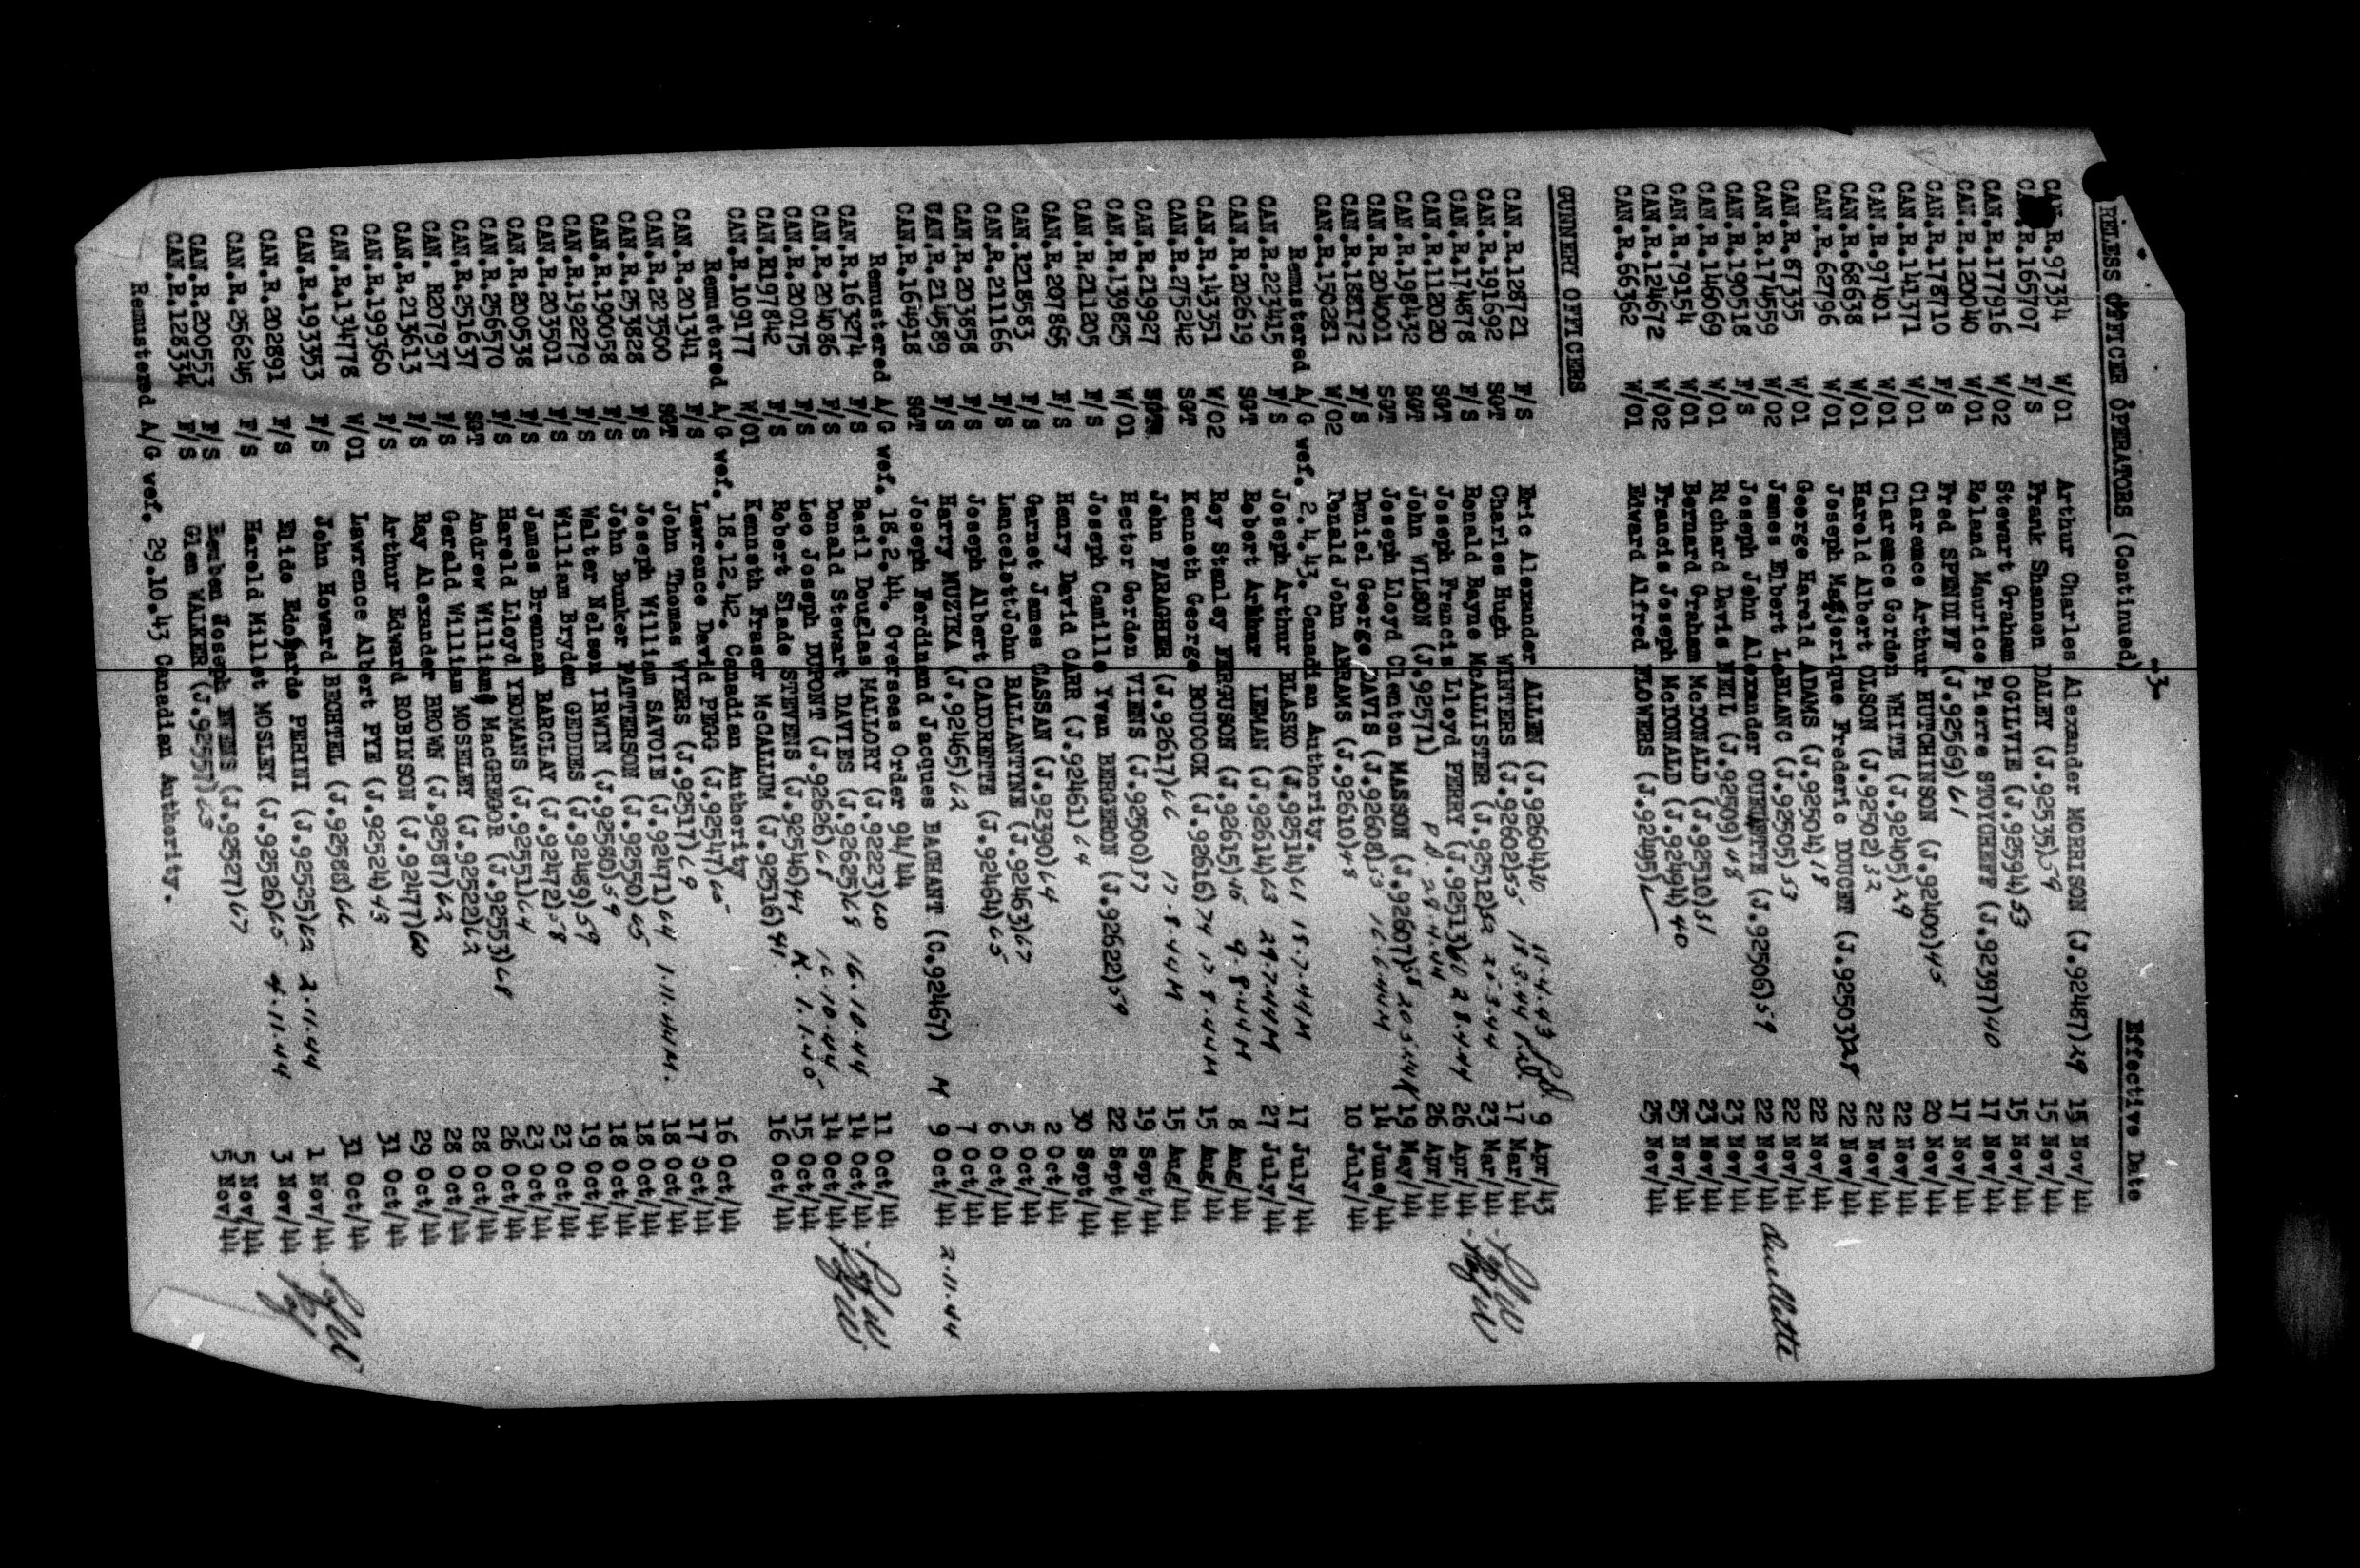 -3-
RELESS OFFICER OPERATORS (Continued) Effective Date
CAN.R.97334 W/O1 Arthur Charles Alexander MORRISON (J.92487)29 15 Nov/44
CAN.R.165707 F/S Frank Shannon DALEY (J.92535)59 15 Nov/44
CAN.R.177916 W/O2 Stewart Graham OGILVIE (J.92594)53 15 Nov/44
CAN.R.120040 W/O1 Roland Maurice Pierre STOYCHEFF (J.92397)40 17 Nov/44
CAN.R.178710 F/S Fred SPENDIFF (J.92569)61 17 Nov/44
CAN.R.141371 W/O1 Clarence Arthur HUTCHINSON (J.92400)45 20 Nov/44
CAN.R.97401 W/O1 Clarence Gordon WHITE (J.92405)29 22 Nov/44
CAN.R.68638 W/O1 Harold Albert OLSON (J.92502)32 22 Nov/44
CAN.R.62796 W/O1 Joseph Marjorique Frederic DOUCET (J.92503)28 22 Nov/44
CAN.R.87335 W/O1 George Harold ADAMS (J.92504)18 22 Nov/44
CAN.R.174559 W/O2 James Elbert LeBLANC (J.92505)53 22 Nov/44
CAN.R.190518 F/S Joseph John Alexander OUELETTE (J.92506)59 22 Nov/44 Ouellette
CAN.R.146069 W/O1 Richard Davis NEIL (J.92509)48 23 Nov/44
CAN.R.79154 W/O1 Bernard Graham McDONALD (J.92510)51 23 Nov/44
CAN.R.124672 W/O2 Francis Joseph McDONALD (J.92494)40 25 Nov/44
CAN.R.66362 W/O1 Edward Alfred FLOWERS (J.92495) 25 Nov/44
GUNNERY OFFICERS
CAN.R.128721 F/S Eric Alexander ALLEN (J.92604) 11.4.43 9 Apr/43
CAN.R.191692 SGT Charles Hugh WINTERS (J.92602)55 18.3.44 17 Mar/44
CAN.R.174878 F/S Ronald Bayne McALLISTER (J.92512)52 23 Mar/44
CAN.R.112020 SGT Joseph Francis Lloyd PERRY (J.92513)60 28.4.44 26 Apr/44
CAN.R.198432 SGT John WILSON (J.92571) 28.4.44 26 Apr/44
CAN.R.204001 SGT Joseph Lloyd Clenton MASSON (J.92607)58 20.5.44 19 May/44
CAN.R.188172 F/S Daniel George DAVIS (J.92608) 16.6.44M 14 June/44
CAN.R.150281 W/O2 Donald John ABRAMS (J.92610)48 10 July/44
Remustered A/G wef. 2.4.43. Canadian Authority.
CAN.R.223415 F/S Joseph Arthur BLASKO (J.92514)61 18.7.44M 17 July/44
CAN.R.202619 SGT Robert Arthur LEMAN (J.92614)63 29.7.44M 27 July/44
CAN.R.143351 W/O2 Roy Stanley FERGUSON (J.92615)46 9.8.44M 8 Aug/44
CAN.R.275242 SGT Kenneth George BOUCOCK (J.92616)74 17.8.44M 15 Aug/44
CAN.R.219927 John FARAGHER (J.92617)66 17.8.44M 15 Aug/44
CAN.R.139825 W/O1 Hector Gordon VIENS (J.92500)37 19 Sept/44
CAN.R.211205 F/S Joseph Camille Yvan BERGERON (J.92622)59 22 Sept/44
CAN.R.207865 F/S Henry David CARR (J.92461)64 30 Sept/44
CAN.R.218583 F/S Garnet James CASSAN (J.92390)64 2 Oct/44
CAN.R.211166 F/S LancelettJohn BALLANTYNE (J.92463)67 5 Oct/44
CAN.R.203858 F/S Joseph Albert CADORETTE (J.92464)65 6 Oct/44
CAN.R.214589 F/S Harry MUZYKA (J.92465)62 7 Oct/44
CAN.R.164918 SGT Joseph Ferdinand Jacques BACHANT (C.92467) M 9 Oct/44 2.11.44
Remustered A/G wef. 18.2.44. Overseas Order 94/44
CAN.R.163274 F/S Basil Douglas MALLORY (J.92223)60 11 Oct/44
CAN.R.204086 F/S Donald Stewart DAVIES (J.92625)65 16.10.44 14 Oct/44
CAN.R.200175 F/S Leo Joseph DUPONT (J.92626)68 16.10.44 14 Oct/44
CAN.R197842 F/S Robert Slade STEVENS (J.92546)41 15 Oct/44
CAN.R.109177 W/O1 Kenneth Fraser McCALLUM (J.92516)41 16 Oct/44
Remustered A/G wef. 18.12.42. Canadian Authority
CAN.R.201341 F/S Lawrence David PEGG (J.92547)65 16 Oct/44
CAN.R.223500 SGT John Thomas WYERS (J.92517)69 17 Oct/44
CAN.R.253828 F/S Joseph William SAVOIE (J.92471)64 1.11.44M. 18 Oct/44
CAN.R.190058 F/S John Bunker PATTERSON (J.92550)65 18 Oct/44
CAN.R.192279 F/S Walter Nelson IRWIN (J.92580)59 18 Oct/44
CAN.R.203501 F/S William Bryden GEDDES (J.92489)59 19 Oct/44
CAN.R.209538 F/S James Brennan BARCLAY (J.92472)58 23 Oct/44
CAN.R.256570 F/S Harold Lloyd YEOMANS (J.92551)64 23 Oct/44
CAN.R.251637 SGT Andrew William MacGREGOR (J.92553)68 26 Oct/44
CAN. R207937 F/S Gerald William MOSELEY (J.92522)62 28 Oct/44
CAN.R.213613 F/S Ray Alexander BROWN (J.92587)62 28 Oct/44
CAN.R.199360 F/S Arthur Edward ROBINSON (J.92477)60 29 Oct/44
CAN.R.134778 W/O1 Lawrence Albert PYE (J.92524)43 31 Oct/44
CAN.R.193353 F/S John Howard BECHTEL (J.92588)66 31 Oct/44
CAN.R.202891 F/S Ewide Edoardo PERINI (J.92525)62 2.11.44 1 Nov/44
CAN.R.256245 F/S Harold Millet MOSLEY (J.92526)65 4.11.44 3 Nov/44
CAN.R.200553 F/S Reuben Joseph (J.92527)67 5 Nov/44
CAN.R.128334 F/S Glen WALKER (J.92557)63 5 Nov/44
Remustered A/G wef. 29.10.43 Canadian Authority.